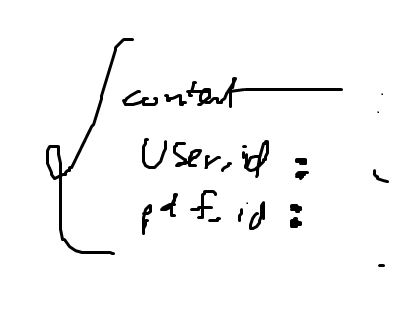 content
User_id :
pdf_id :